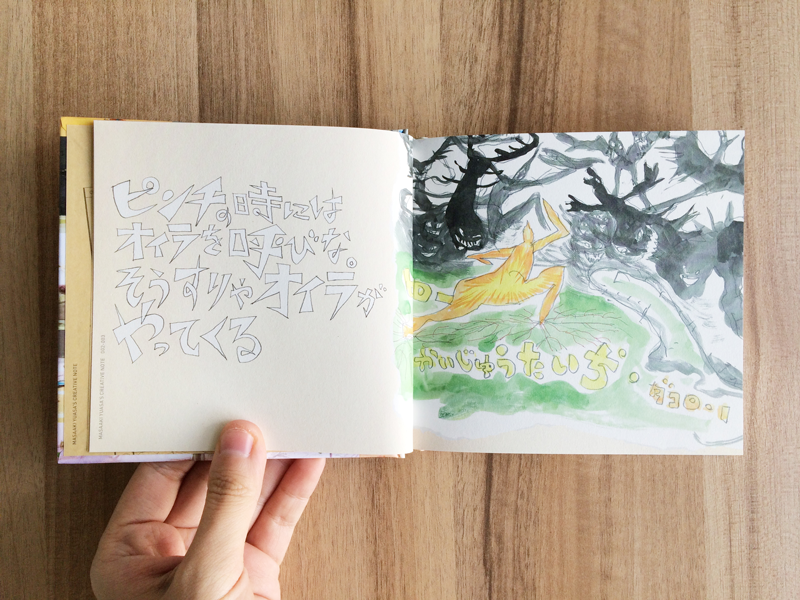 ピンチの時には
オイラを呼びな。
そうすりゃオイラが
やってくる
MASAAKI YUASA'S CREATIVE NOTE
MASAAKI YUASA'S CREATIVE NOTE
かいじゅうたいぢ。